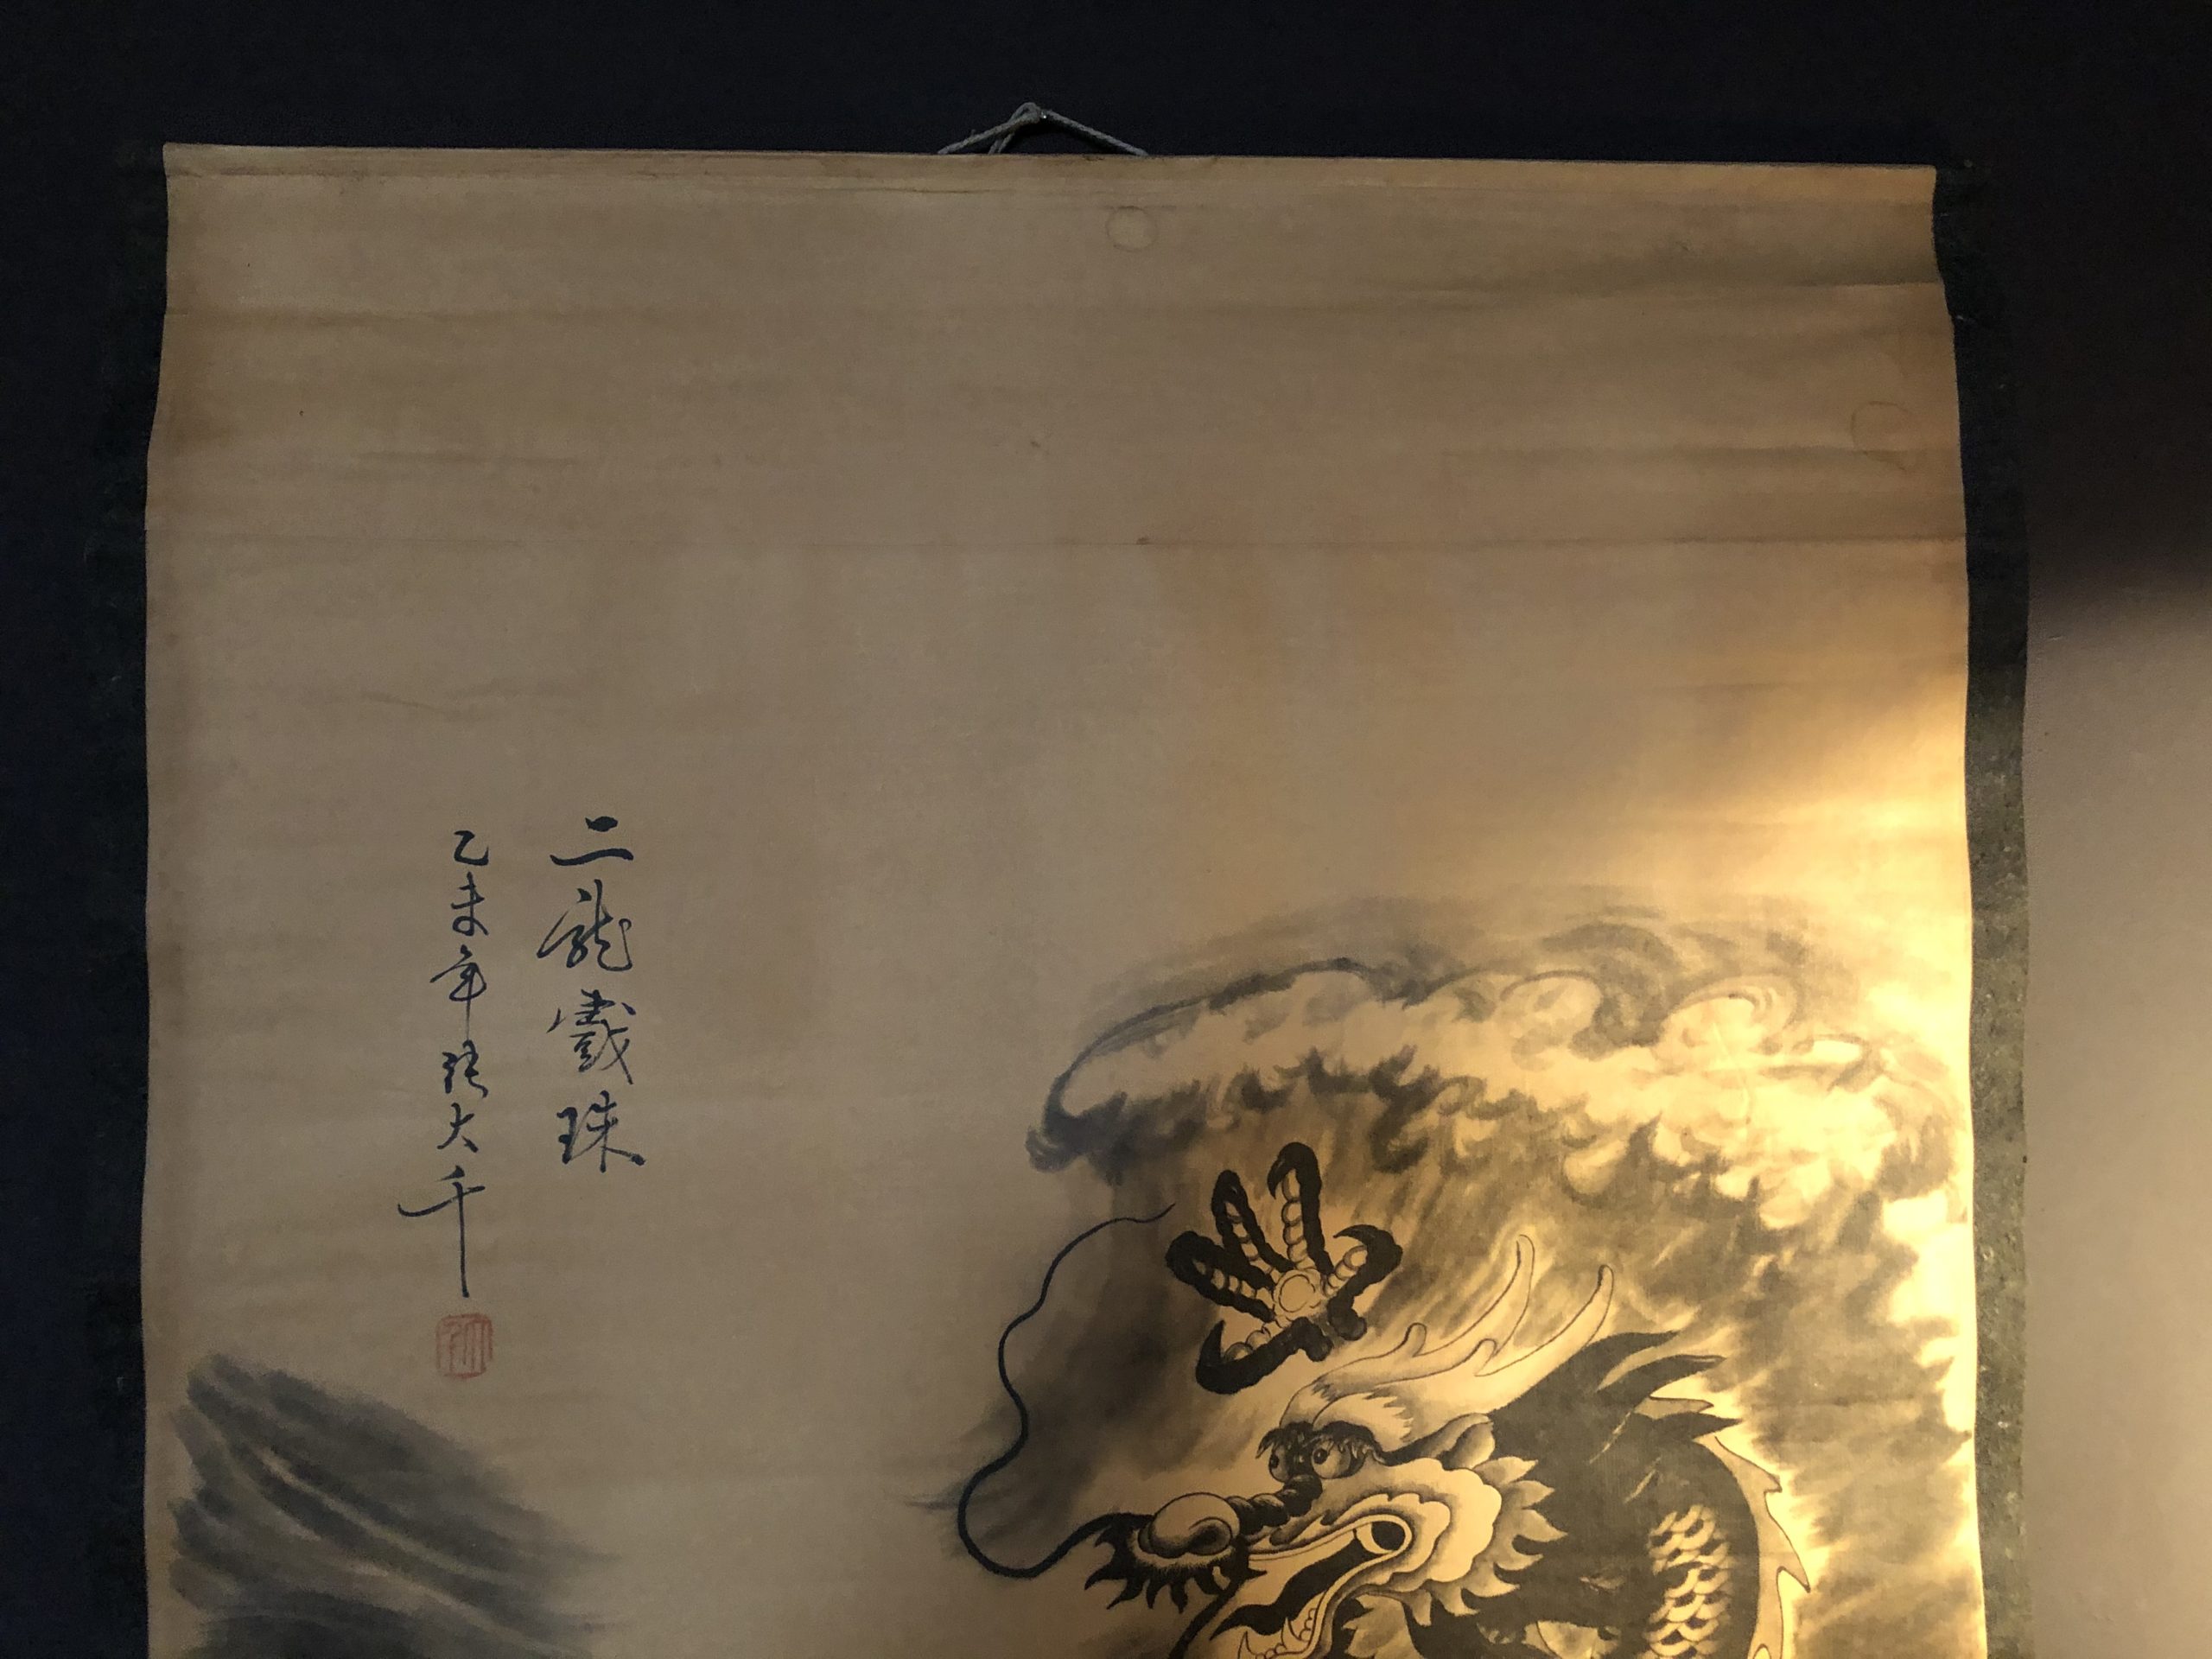 二龍戲珠
乙未年張大千